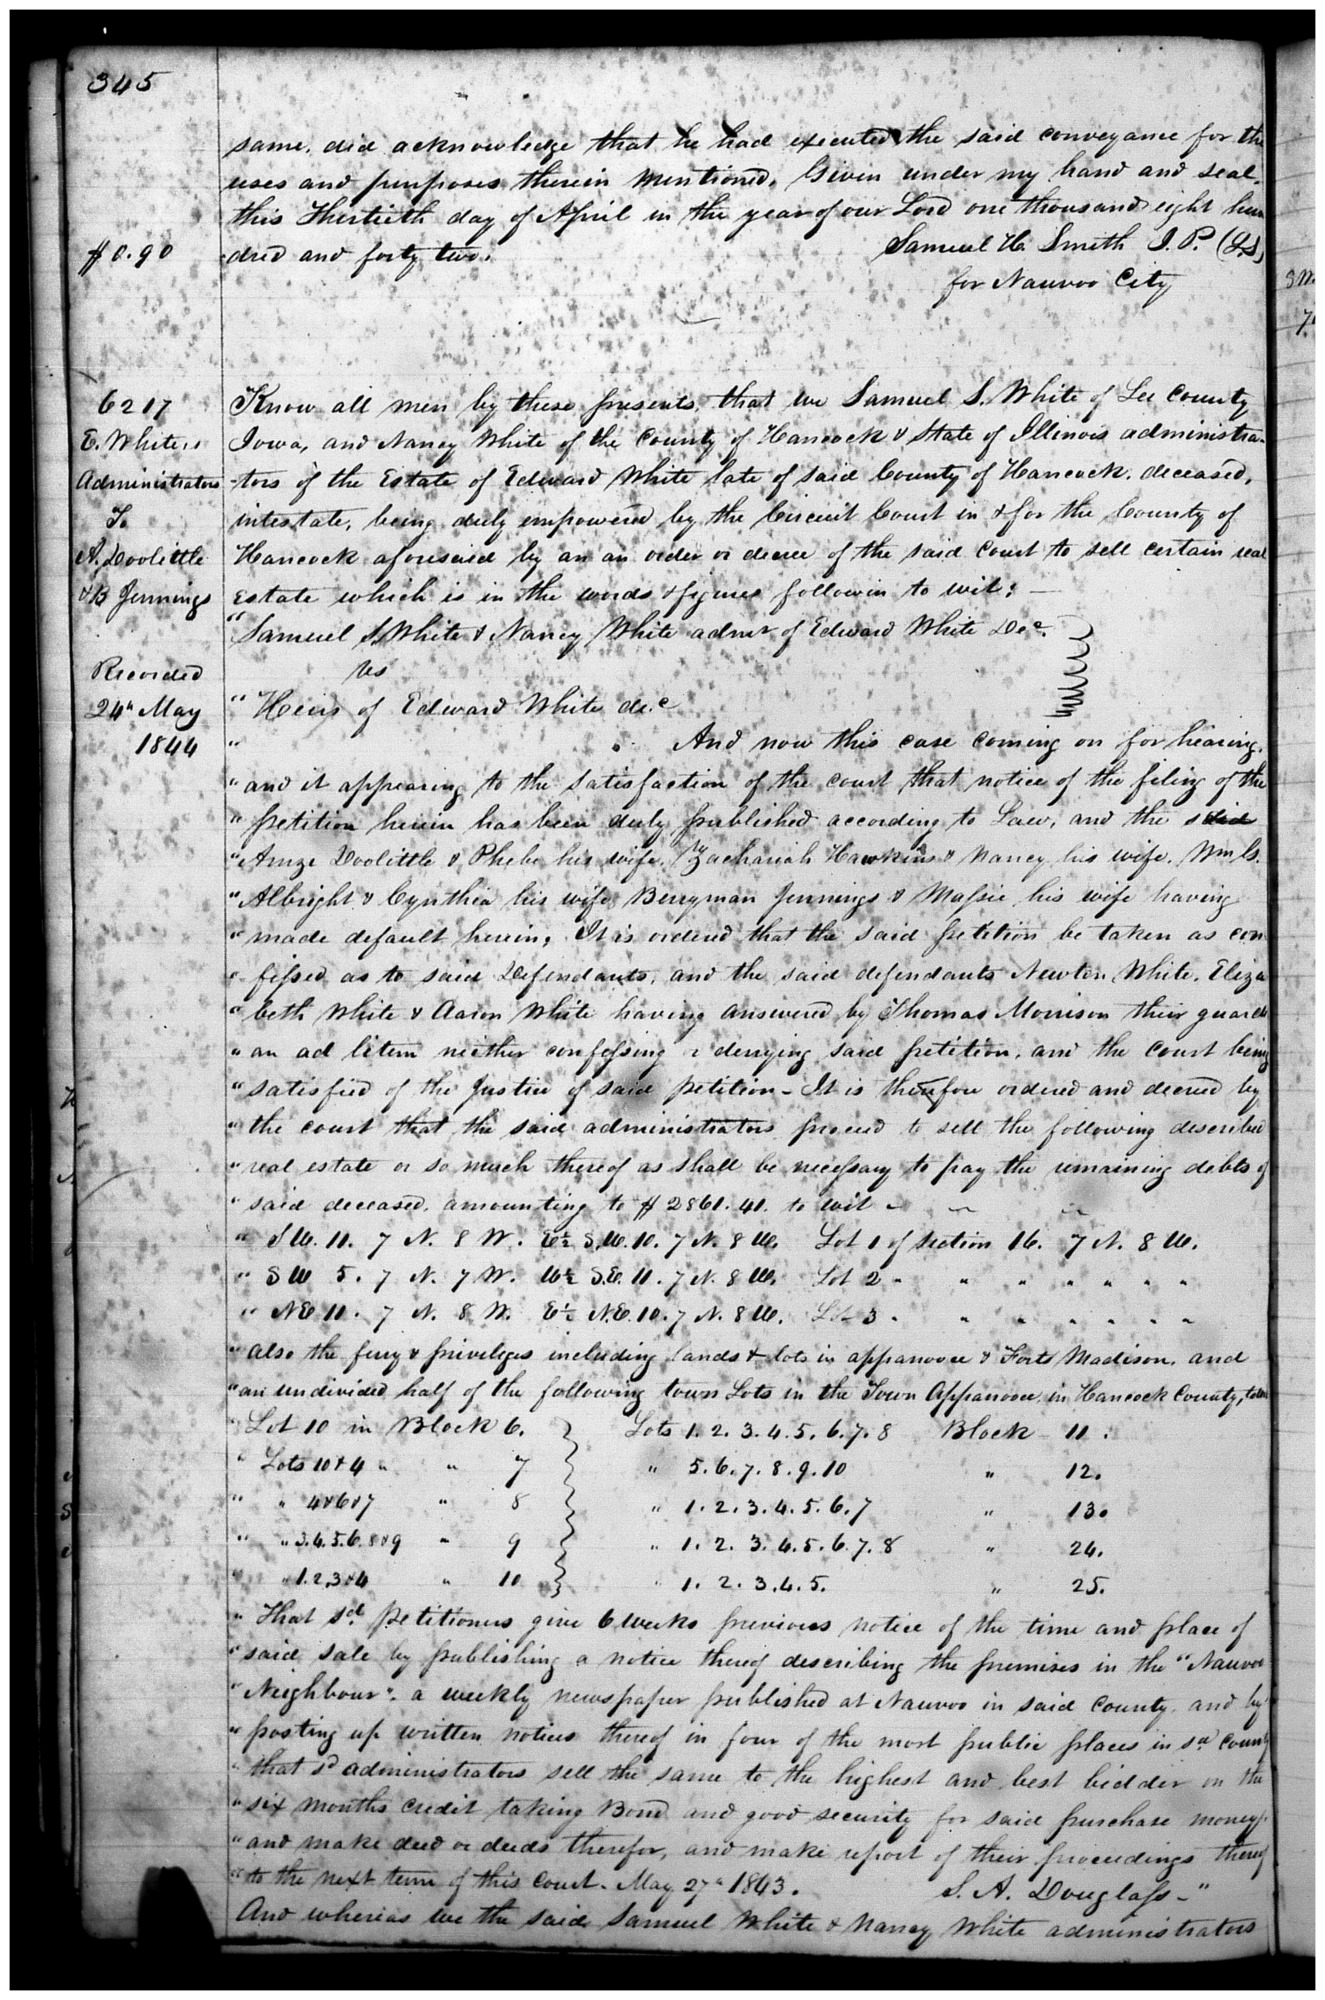 345
same, did acknowledge that he had executed the said conveyance for the
uses and purposes therein mentioned. Given under my hand and seal
this Thirtieth day of April in the year of our Lord one thousand eight hun
$0.90 dred and forty two. Samuel H. Smith J. P. (L.S)
for Nauvoo City
6217 Know all men by these presents, that we Samuel S. White of Lee County
E. Whites, Iowa, and Nancy White of the County of Hancock & State of Illinois administra-
Administrators -tors of the Estate of Edward White late of said County of Hancock, deceased,
To intestate, being duly empowered by the Circuit Court in & for the County of
A. Doolittle Hancock aforesaid by an an order or decree of the said Court to sell certain real
& B Jennings Estate which is in the words & figures followin to wit; —
"Samuel S. White & Nancy White admrs of Edward White Decd.
Recorded vs
24th May " Heirs of Edward White decd
1844 " And now this case coming on for hearing,
" and it appearing to the satisfaction of the court that notice of the filing of the
" petition herein has been duly published according to Law, and the said
" Amze Doolittle & Phebe his wife, Zachariah Hawkins & Nancy his wife, Wm C.
" Albright & Cynthia his wife, Berryman Jennings & Massie his wife having
" made default herein, It is ordered that the said petition be taken as con
" fessed as to said Defendants, and the said defendants Newton White, Eliza
" beth White & Aaron White having answered by Thomas Morrison their guardi
" an ad litem neither confessing or denying said petition, and the court being
" satisfied of the Justice of said petition - It is therefore ordered and decreed by
" the court that the said administrators proceed to sell the following described
" real estate or so much thereof as shall be necessary to pay the remaining debts of
" said deceased, amounting to $2861.41. to wit -
" S W. 11. 7 N. 8 W. E½ S.W. 10. 7 N. 8 W. Lot 1 of section 16. 7 N. 8 W.
" S W 5. 7 N. 7 W. W½ S.E. 11. 7 N. 8 W. Lot 2 " " " " " " "
" N E 11. 7 N. 8 W. E½ N.E. 10. 7 N. 8 W. Lot 3 " " " " " " "
" also the ferry & privileges including lands & lots in appanooce & Forts Madison, and
" an undivided half of the following town Lots in the Town Appanooce, in Hancock County, to wit
" Lot 10 in Block 6. Lots 1. 2. 3. 4. 5. 6. 7. 8 Block 11.
" Lots 10 & 4 " " 7 " 5. 6. 7. 8. 9. 10 " 12.
" " 4 & 6 & 7 " 8 " 1. 2. 3. 4. 5. 6. 7 " 13.
" " 3. 4. 5. 6. 8 & 9 " 9 " 1. 2. 3. 4. 5. 6. 7. 8 " 24.
" " 1. 2, 3 & 4 " 10 " 1. 2. 3. 4. 5. " 25.
" That sd petitioners give 6 weeks previous notice of the time and place of
" said sale by publishing a notice thereof describing the premises in the "Nauvoo
" Neighbour". a weekly newspaper published at Nauvoo in said County, and by
" posting up written notices thereof in four of the most public places in sd county
" that sd administrators sell the same to the highest and best bidder on the
" six months credit taking Bond and good security for said purchase money,
" and make deed or deeds therefor, and make report of their proceedings thereof
" to the next term of this Court. May 27th 1843. S. A. Douglass -"
And whereas we the said Samuel White & Nancy White administrators